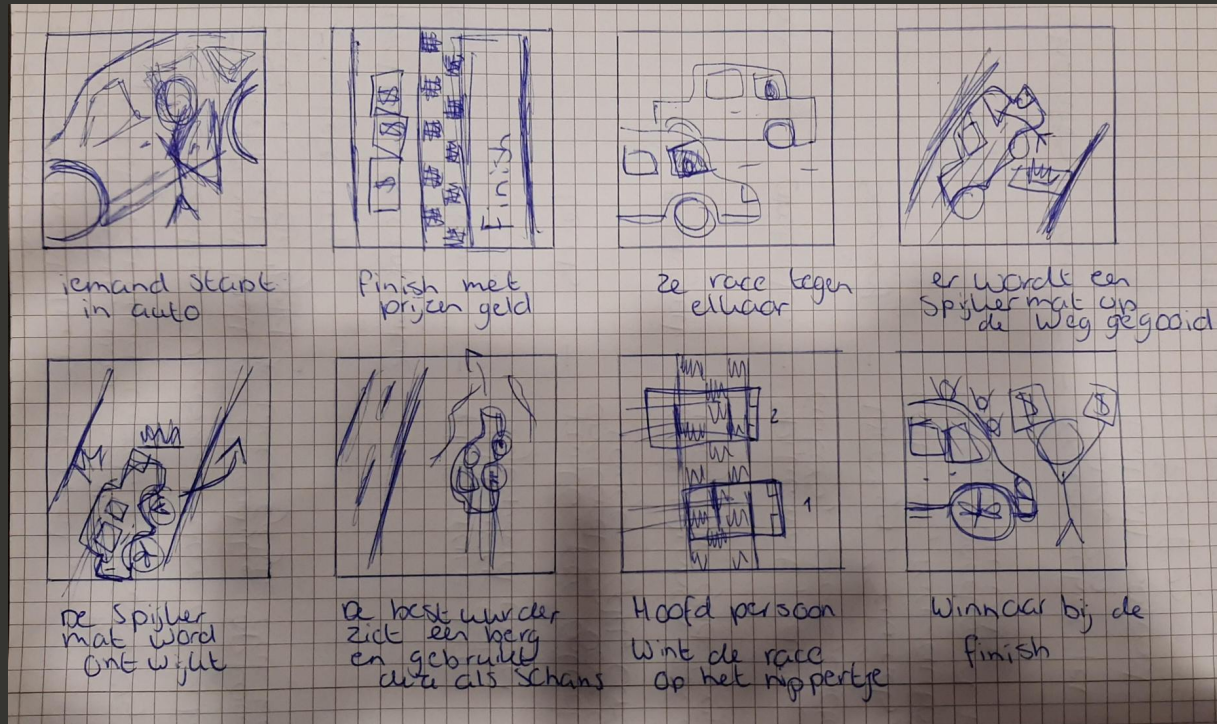 $
$ $
$
Finish
iemand stapt
in auto
finish met
prijzen geld
ze race tegen
elkaar
er wordt een
spijkermat op
de weg gegooid
2
1
$
$
De Spijker
mat word
ontwijkt
De bestuurder
ziet een berg
en gebruikt
die als schans
Hoofd persoon
wint de race
op het nippertje
winnaar bij de
finish